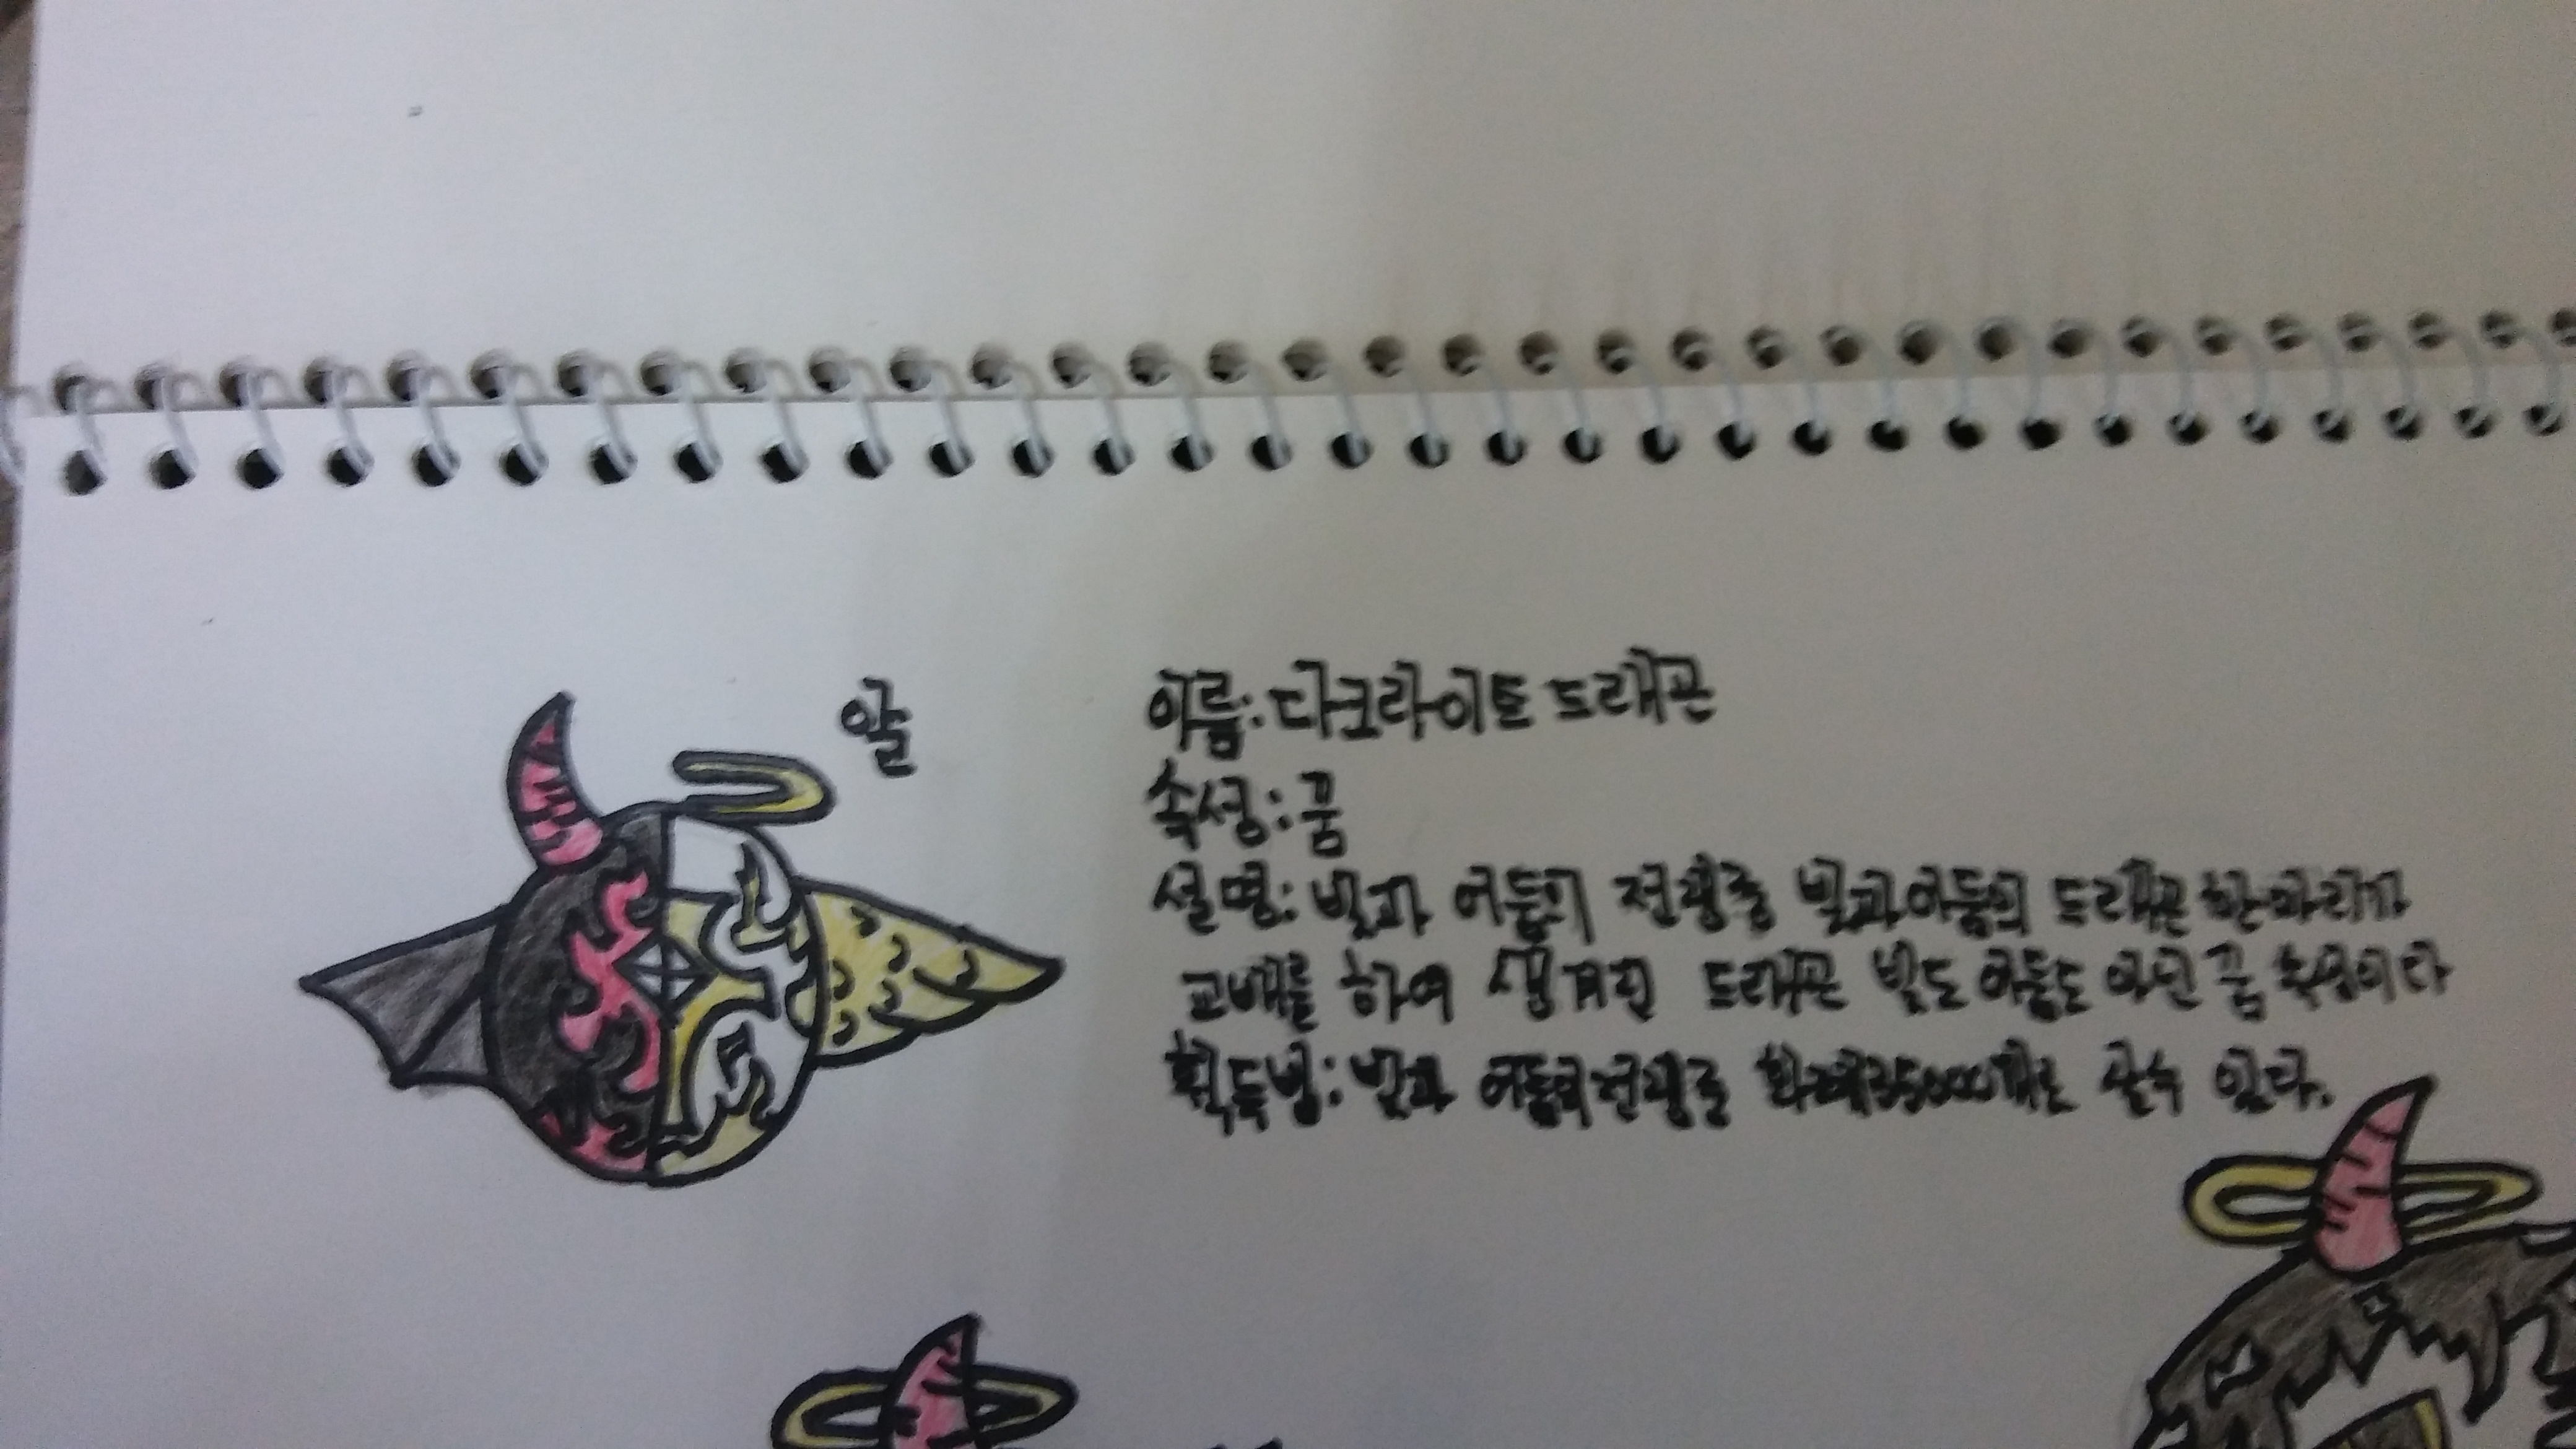 알
이름: 다크라이트 드래곤
속성: 꿈
설명: 빛과 어둠의 전쟁중 빛과 어둠의 드래곤 한마리가
교배를 하여 생겨진 드래곤 빛도 어둠도 아닌 꿈 속성이다
획득법: 빛과 어둠의 전쟁중 살수 있다.